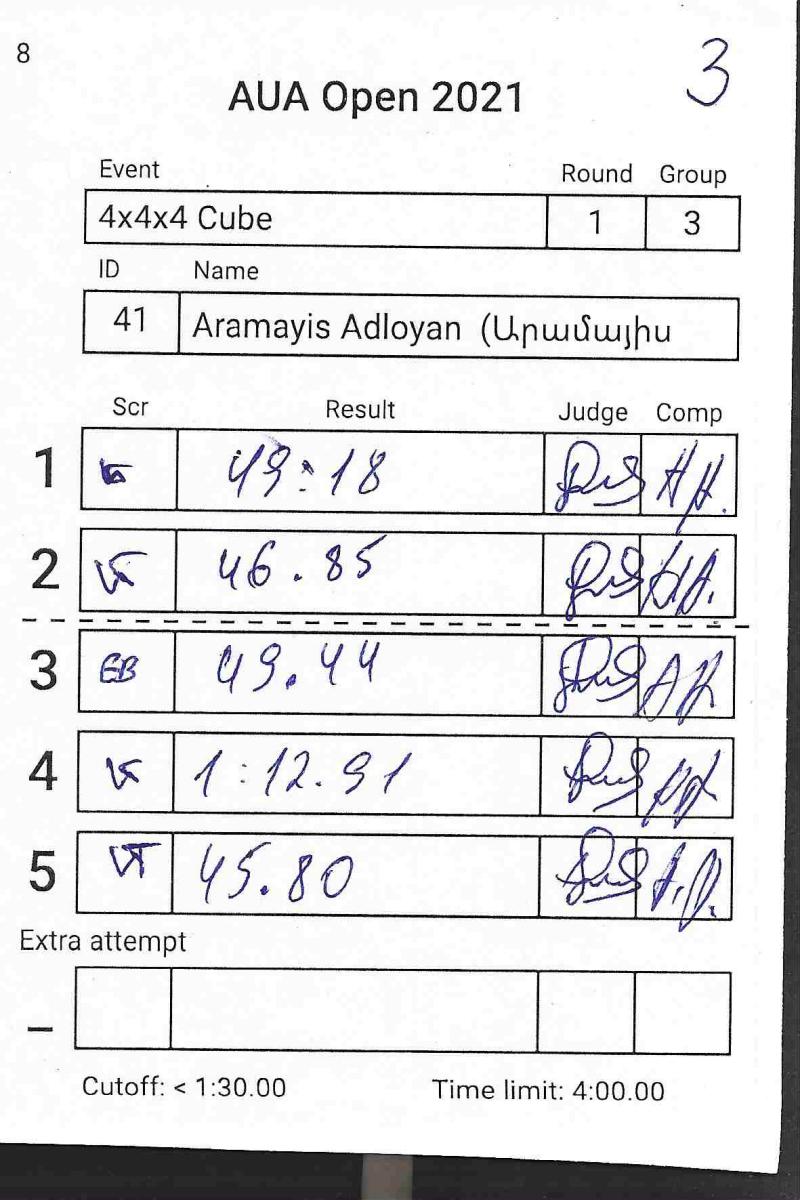 8
3
AUA Open 2021
Event Round Group
4x4x4 Cube 1 3
ID Name
41 Aramayis Adloyan (Արամայիս
Scr Result Judge Comp
1 49:18
2 46.85
3 EB 49.44
4 1:12.91
5 45.80
Extra attempt
_
Cutoff: < 1:30.00 Time limit: 4:00.00